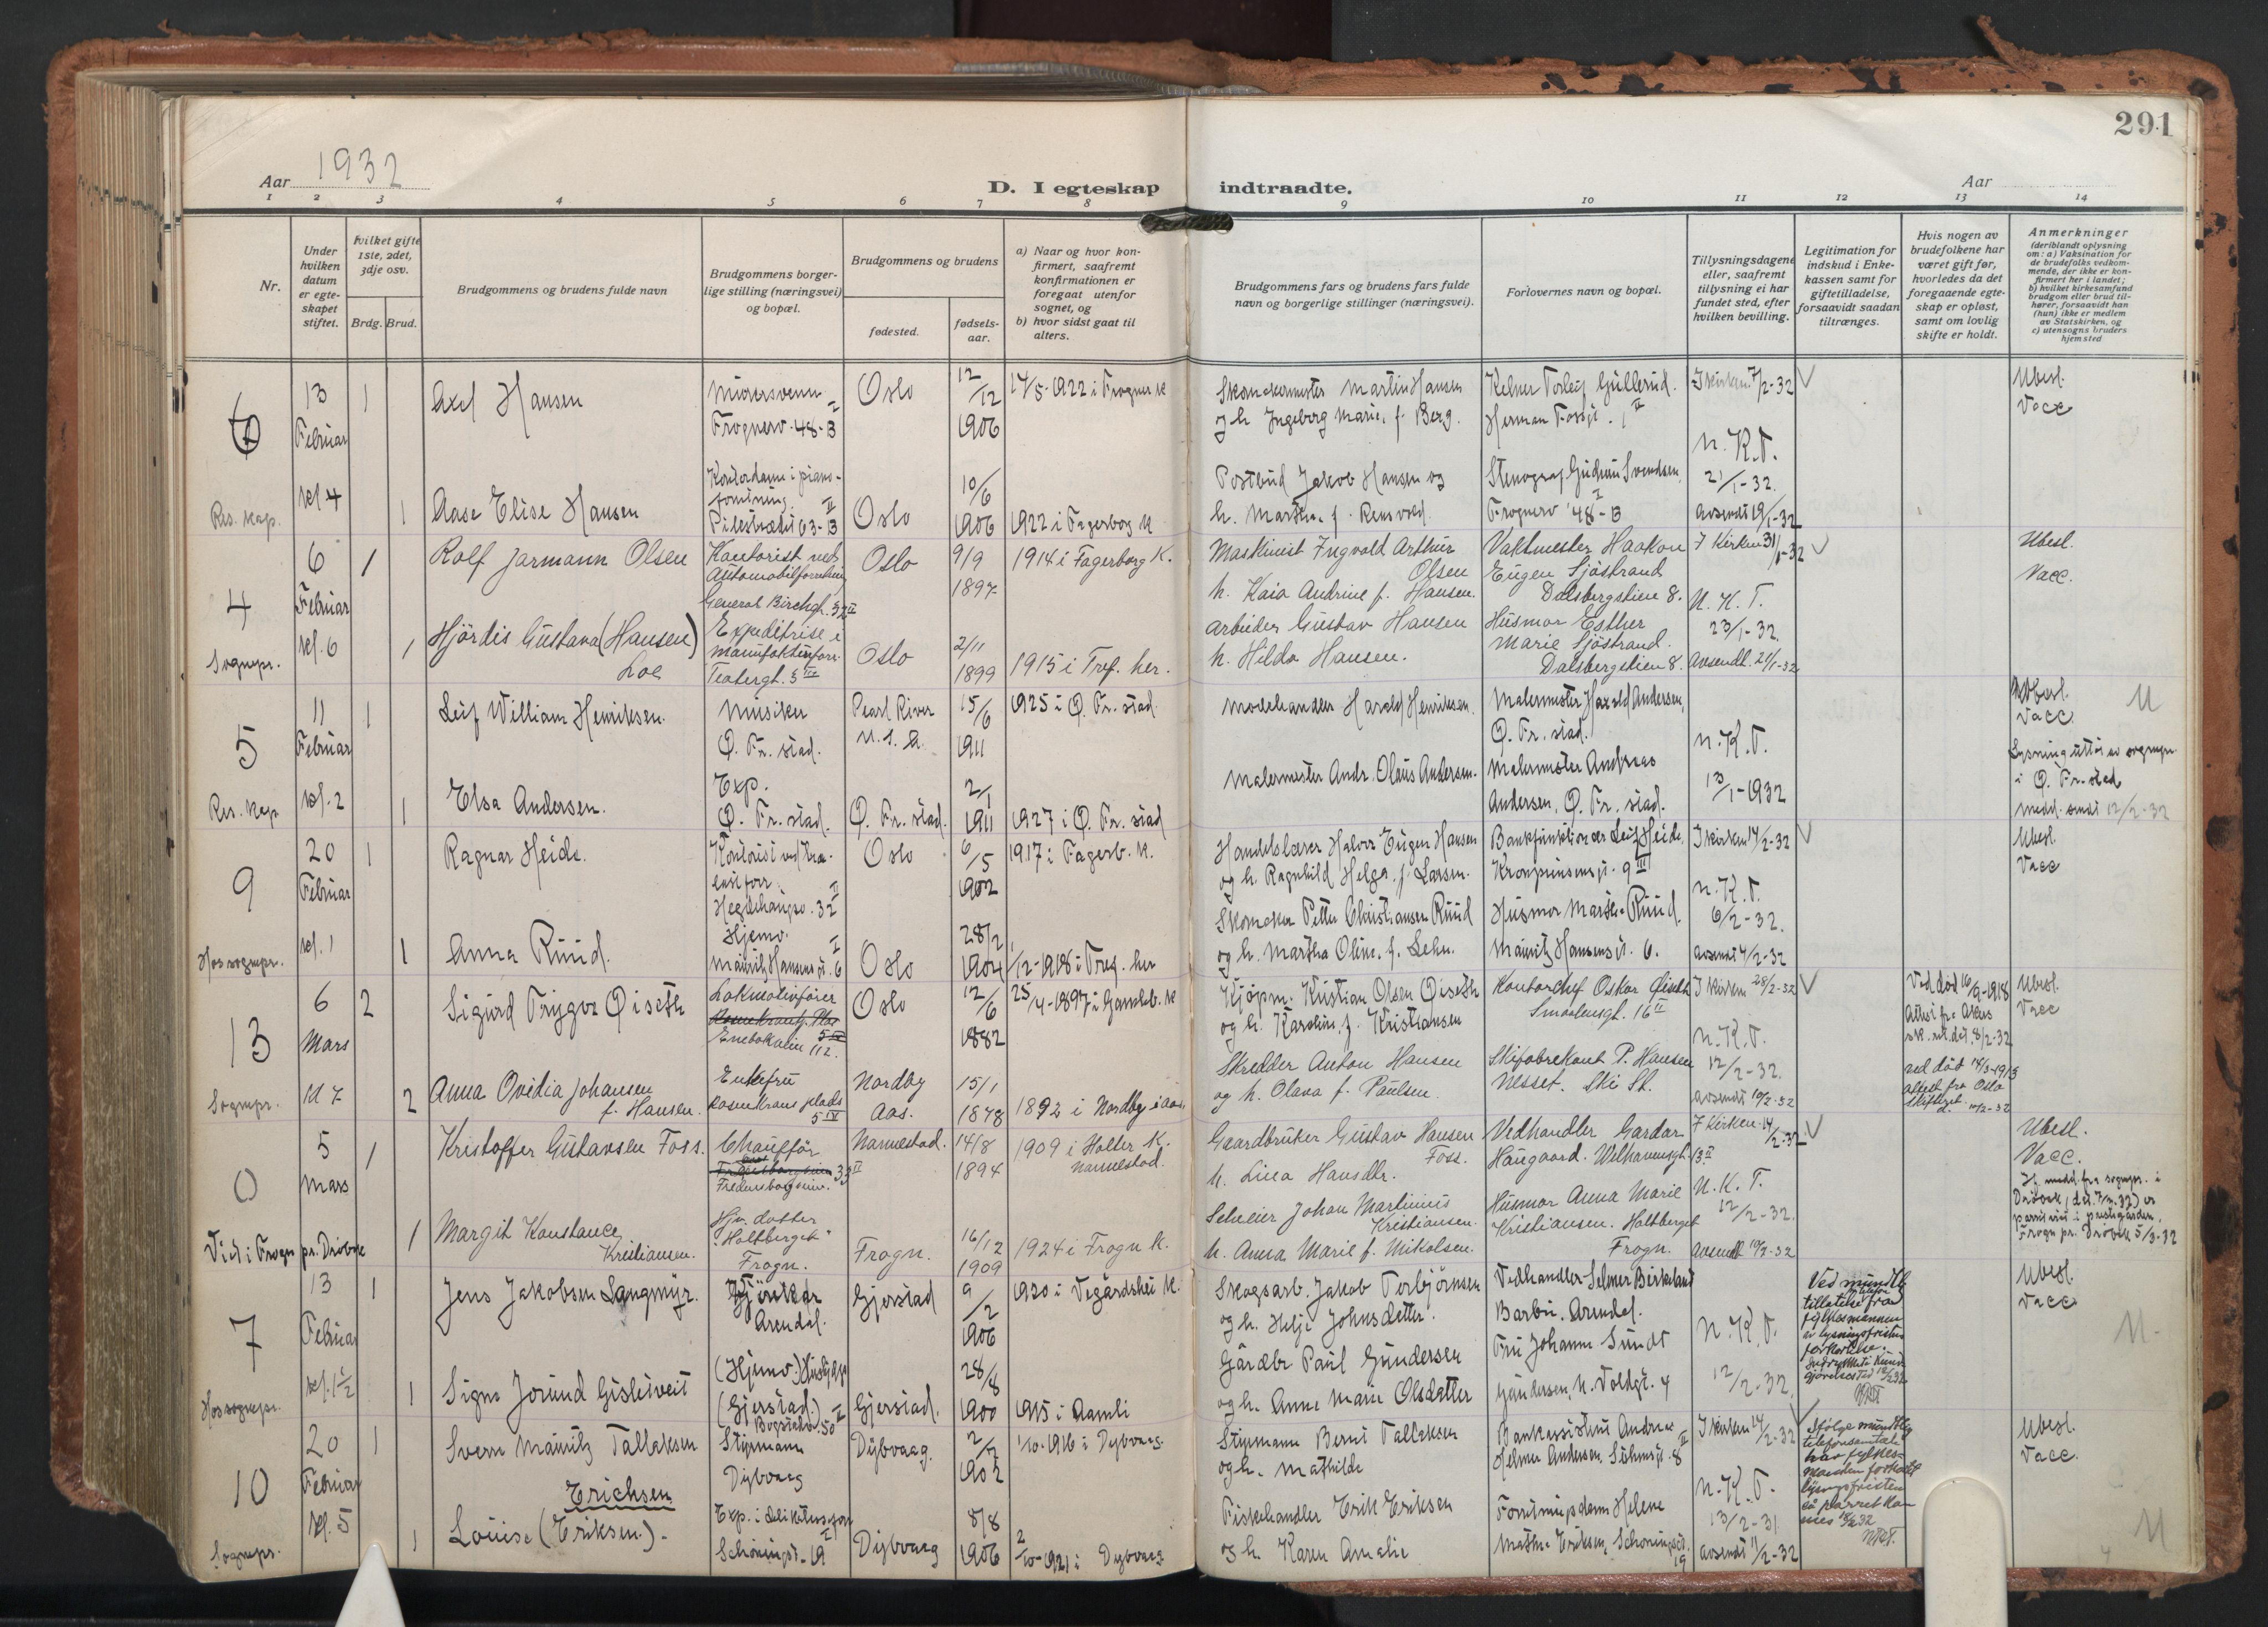 291
Aar 1932
D. I egteskap indtraadte.
Aar
1 2 3 4 5 6 7 8 9 10 11 12 13 14
Nr.
Under hvilken datum er egteskapet stiftet.
Hvilket gifte 1ste, 2det, 3dje osv.
Brdg. Brud.
Brudgommens og brudens fulde navn
Brudgommens borgerlige stilling (næringsvei) og bopæl.
Brudgommens og brudens
fødested.
fødselsaar.
a) Naar og hvor konfirmert, saafremt konfirmationen er foregaat utenfor sognet, og
b) hvor sidst gaat til alters.
Brudgommens fars og brudens fars fulde navn og borgerlige stillinger (næringsvei).
Forlovernes navn og bopæl.
Tillysningsdagene eller, saafremt tillysning ei har fundet sted, efter hvilken bevilling.
Legitimation for indskud i Enkekassen samt for giftetilladelse, forsaavidt saadan tiltrænges.
Hvis nogen av brudefolkene har været gift før, hvorledes da det foregaaende egteskap er opløst, samt om lovlig skifte er holdt.
Anmerkninger
(deriblandt oplysning om: a) Vaksination for de brudefolks vedkommende, der ikke er konfirmert her i landet; b) hvilket kirkesamfund brudgom eller brud tilhører, forsaavidt han (hun) ikke er medlem av Statskirken, og c) utensogns bruders hjemsted
6 13 Februar kl 4 Res. kap.
1 Axel Hansen
Murersvenn Frognerv. 48-B I
Oslo 12/12 1906
14/5-1922 i Frogner K
Skomakermester Martin Hansen
og h. Ingeborg Marie, f. Berg.
Kelner Torleif Gullerud.
Herman Fossgt. 1 II
I kirken 7/2-32
Ubesl.
Vacc
1 Aase Elise Hansen
Kontordame i piano-
Pilestrædet 63-B II
Oslo 10/6 1906
1922 i Fagerborg K
Postbud Jakob Hansen og
h. Martha f. Remvold.
Stenograf Gudrun Svendsen,
Frognerv 48-B I
N.K.T.
21/1-32.
avsendt 19/1-32
4 6 Februar kl. 6 Sognepr.
1 Rolf Jarmann Olsen
Kontorist ved
Automobilforretning
General Birchgt. 32 II
Oslo 9/9 1897
1914 i Fagerborg K.
Maskinist Ingvald Arthur
Olsen
h. Kaia Andrine f. Hansen.
Vaktmester Haakon
Eugen Sjöstrand
Dalsbergstien 8.
I Kirken 31/1-32
Ubesl.
Vacc.
1 Hjördis Gustava (Hansen)
Loe
Expeditrise i
manufakturforr.
Teatergt. 5 III
Oslo 2/11 1899
1915 i Tref. her.
Arbeider Gustav Hansen
h. Hilda Hansen.
Husmor Esther
Marie Sjöstrand.
Dalsbergstien 8.
N.K.T.
23/1-32.
Avsendt. 21/1-32
5 11 Februar kl. 2 Res. kap
1 Leif William Henriksen.
Musiker
Ø. Fr. stad.
Pearl River
U.S.A.
15/6 1911
1925 i Ø. Fr. stad
Harald Henriksen.
Malermester Harald Andersen,
Ø. Fr. stad.
Ubesl.
Vacc.
1 Elsa Andersen.
Exp.
Ø. Fr. stad.
Ø. Fr. stad.
2/1 1911
1927 i Ø. Fr. stad
Malermester Andr. Olaus Andersen.
Malermester Andreas
Andersen, Ø. Fr. stad.
N.K.T.
13/1-1932
Lysning utført av sognepr.
i Ø. Fr. stad
medd. sendt 12/2-32
9 20 Februar kl. 1 Hos sognepr.
1 Ragnar Heide.
Hegdehaugsv. 32 II
Oslo 6/5 1902
1917 i Fagerb. K.
Handelslærer Halvor Eugen Hansen
og h. Ragnhild Helga, f. Larsen.
Bankfunktionær Leif Heide,
Kronprinsensgt. 9 III
I kirken 14/2-32
Ubesl.
Vacc
1 Anna Ruud.
Hjemv.
Mauritz Hansensgt. 6 I
Oslo 28/2 1904
1/12-1918 i Tref. her
Skomaker Petter Christiansen Ruud
og h. Martha Oline, f. Lehn.
Husmor Martha Ruud.
Mauritz Hansensgt. 6.
N.K.T.
6/2-32.
avsendt 4/2-32
13 6 Mars kl 7 Sognepr.
2 Sigurd Trygve Øiseth
Lokmotivfører
Rosenkrantz Plas 5 IV
Enebakvein 112.
Oslo 12/6 1882
25/4-1897 i Gamleb. K
Kjøpm. Kristian Olsen Øiseth
og h. Karoline, f. Kristiansen
Kontorchef Oskar Øiseth
Smaalensgt. 16 II
I kirken 28/2-32
Ved død 16/9-1918
Attest fra Akers
sk. ret. dat. 8/2-32
Ubesl.
Vacc
2 Anna Ovidia Johansen
f. Hansen.
Enkefru
Rosenkrans plads
5 IV
Nordby
Aas.
15/1 1878
1892 i Nordby i Aas.
Skredder Anton Hansen
og h. Olava f. Paulsen.
Skifabrekant P. Hansen
Nesset. Ski St.
N.K.T.
12/2-32.
avsendt 10/2-32
ved død 14/3-1915
attest fra Oslo
skifteret. 10/2-32
0 5 Mars
Viet i Frogn pr. Drøbak
1 Kristoffer Gustavsen Foss.
Chaufför
Fredensborgveien. 33 II
Nannestad.
14/8 1894
1909 i Holter K.
Nannestad.
Gaardbruker Gustav Hansen
Foss.
h. Lina Hansdtr.
Vedhandler Gardar
Haugaard. Welhavensgt. 13 II
I Kirken 14/2-32.
Ubesl.
Vacc.
Flg. medd. fra sognepr. i
Drøbak, dat. 7/3.32) er
parret viet i prestegården,
Frogn pr. Drøbak 5/3-32
1 Margit Konstance
Kristiansen.
Hjv. datter
"Holtberget"
Frogn.
Frogn.
16/12 1909
1924 i Frogn K.
Johan Martinius
Kristiansen.
h. Anna Marie f. Mikalsen.
Husmor Anna Marie
Kristiansen. Holtberget
Frogn.
N.K.T.
12/2-32.
Avsendt 10/2-32
7 13 Februar kl. 1½ Hos sognepr.
1 Jens Jakobsen Langmyr.
Arendal.
Gjerstad
9/2 1906
1920 i Vegårdshei K.
Skogsarb. Jakob Torbjørnsen
og h. Helje Johnsdatter.
Vedhandler Selmer Birkeland
Barbu. Arendal.
Ved mundtl
tillatelse fra
fylkesmannen
er lysningsfristen
forkortet.
Ubesl.
Vacc
1 Signe Jorund Gisleiveit
(Hjemv.) Hushjelp
(Gjerstad.)
Bogstadv. 50 II
Gjerstad.
28/8 1900
1915 i Aamli
Gårdbr Paul Gundersen
og h. Anne Marie Olsdatter
Fru Johanne Sundt
Gundersen, N. Voldgt. 4
N.K.T.
12/2-32.
10 20 Februar kl. 5 Sognepr.
1 Sverre Mauritz Tallaksen
Styrmann
Dybvaag
Dybvaag.
2/2 1902
1/10-1916 i Dybvaag.
Styrmann Bernt Tallaksen
og h. Mathilde
Bankassistent Andreas
Helmer Andersen, Suhmsgt. 8 II
I kirken 14/2-32
Ifølge mundtlig
telefonsamtale
har fylkes-
manden forkortet
lysningsfristen
så parret kan
vies 18/2 32
Ubesl.
Vacc.
Erichsen
1 Louise (Eriksen).
Exp. i delikatesseforr
Schøningsgt. 19 I
Dybvaag
8/8 1906
2/10-1921 i Dybvaag
Fiskehandler Erik Eriksen
og h. Karen Amalie
Forretningsdame Helene
Mathe Eriksen, Schøningsgt.
19
N.K.T.
13/2-31
avsendt 11/2-32